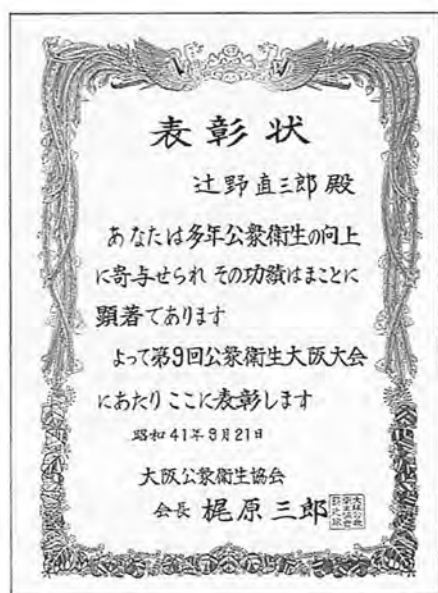 表彰状
辻野直三郎殿
あなたは多年公衆衛生の向上
に寄与せられ その功績はまことに
顕著であります
よって第9回公衆衛生大阪大会
にあたりここに表彰します
昭和41年9月21日
大阪公衆衛生協会
会長 梶原三郎